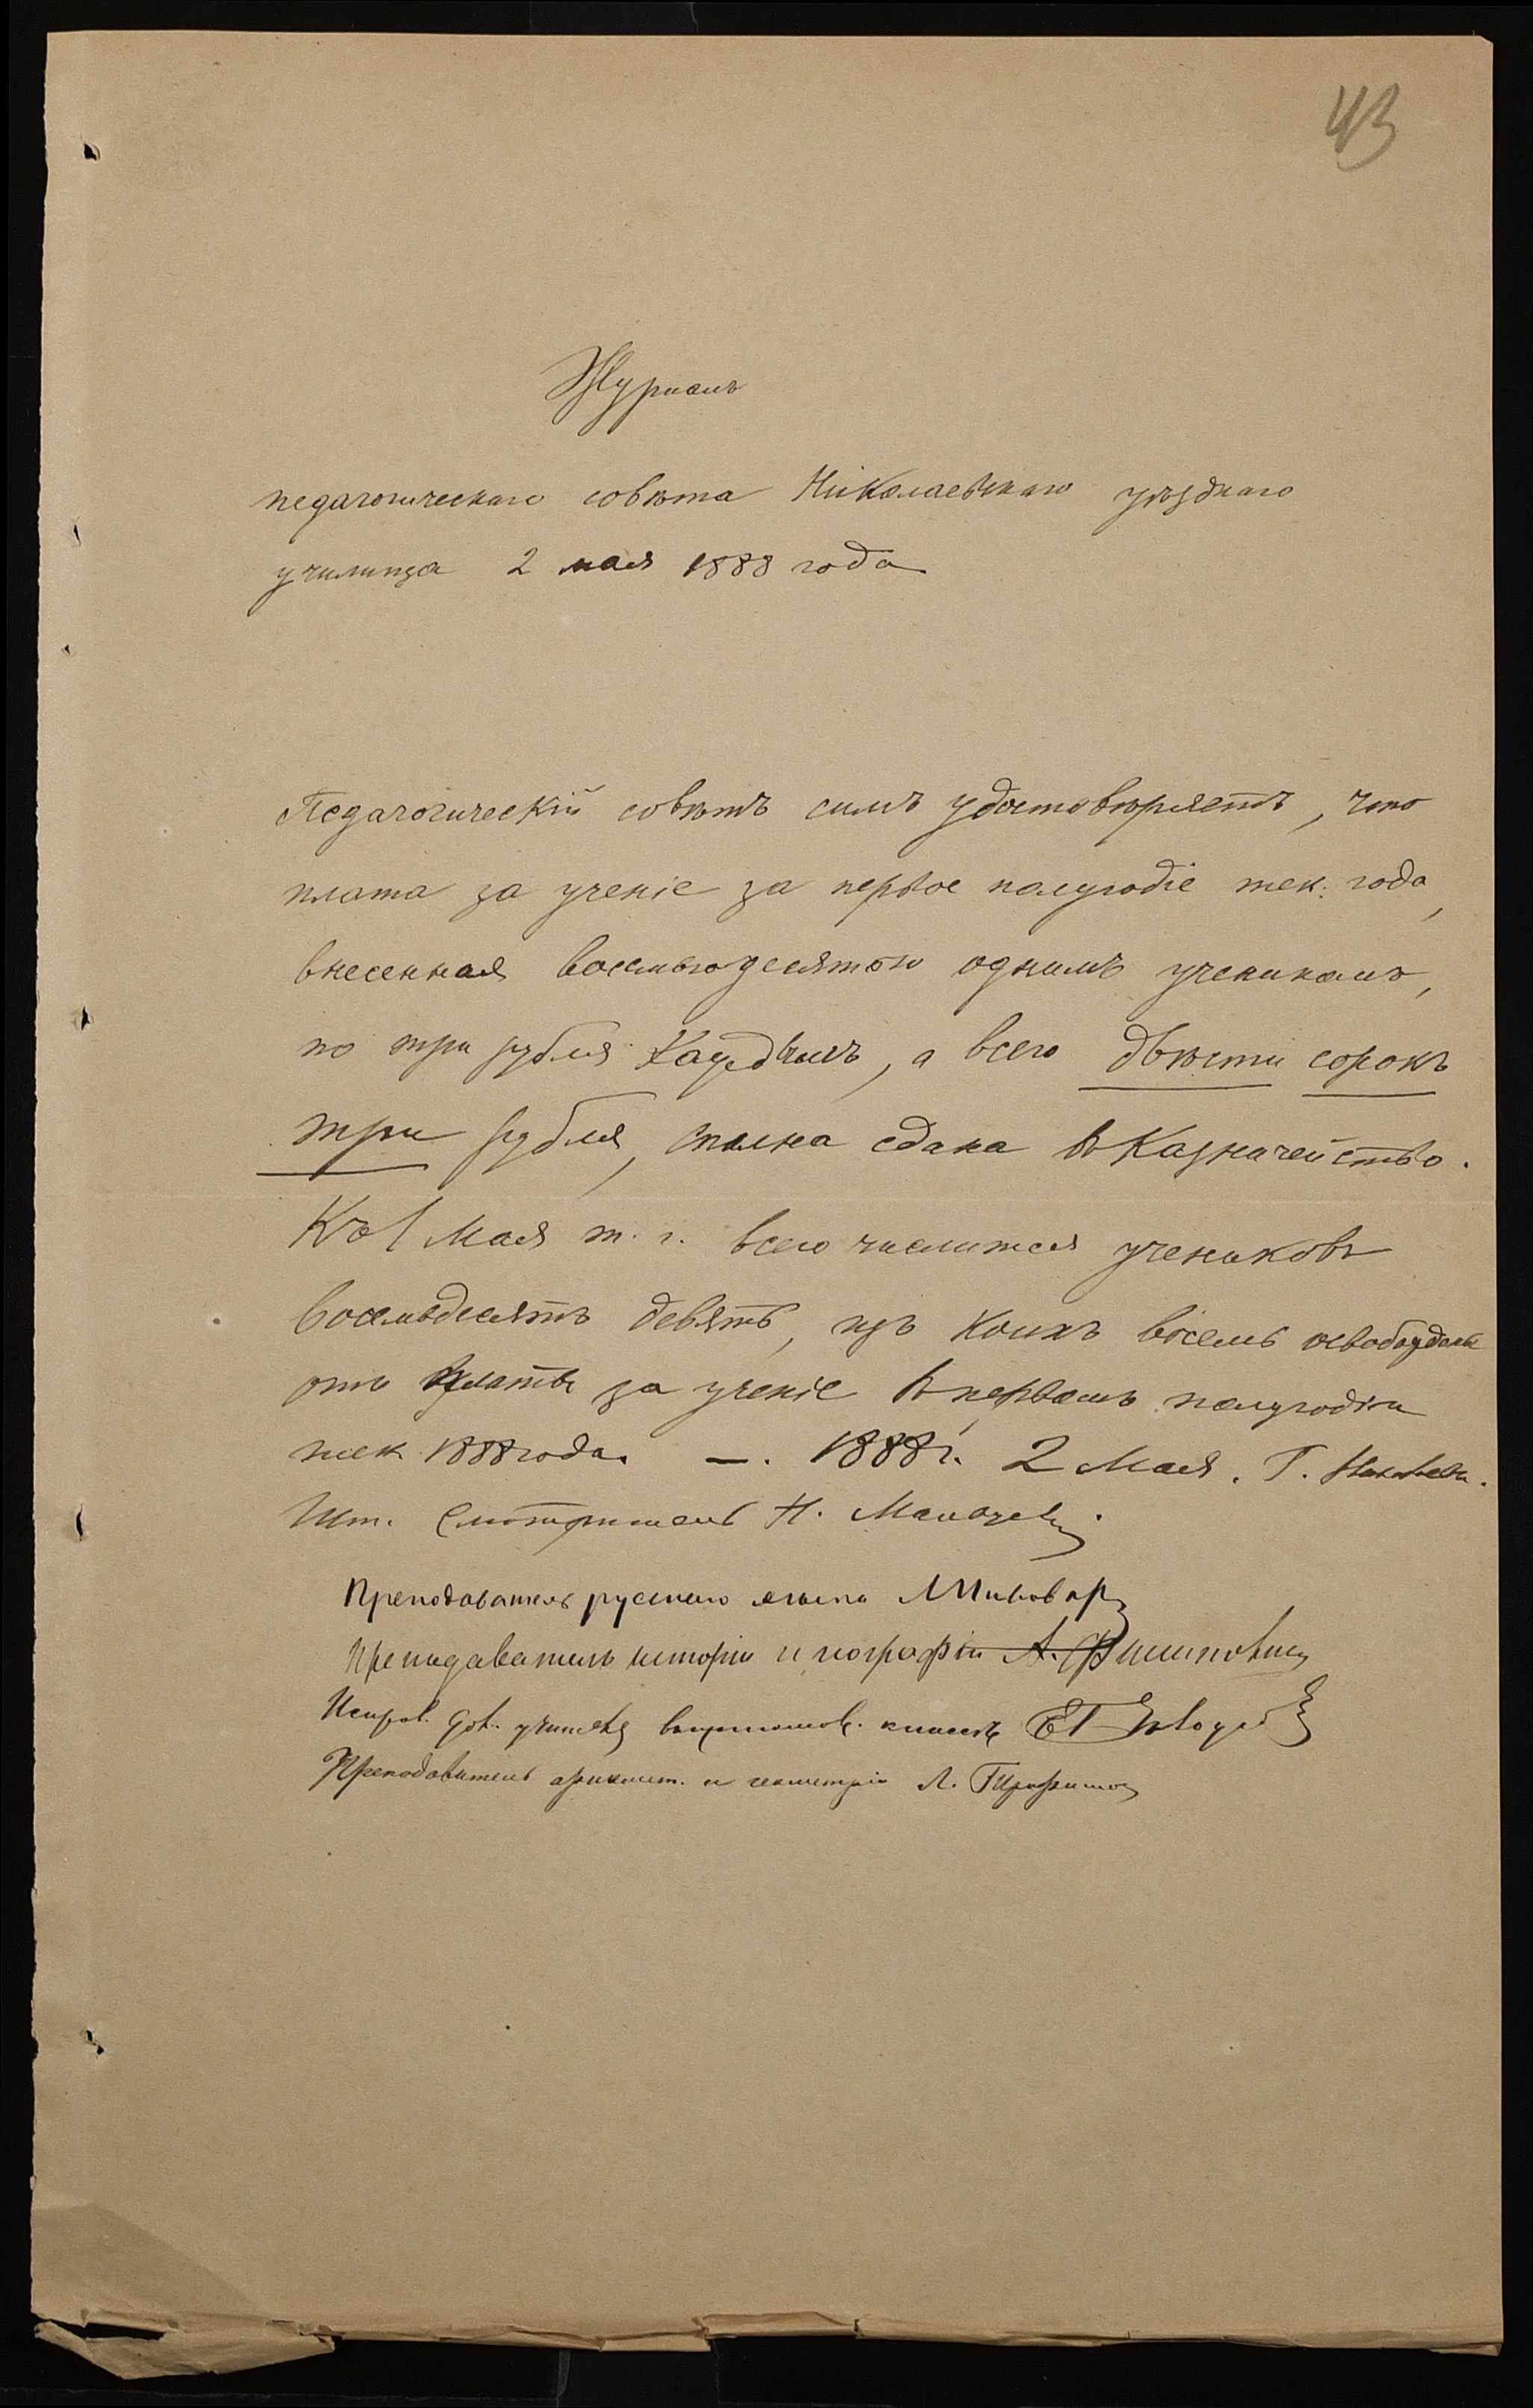 43
Журналъ
педагогическаго совѣта Николаевскаго уѣзднаго
училища 2 мая 1888 года
Педагогическій совѣтъ симъ удостовѣряетъ, что
плата за ученіе за первое полугодіе тек. года,
внесенная восемьюдесятью однимъ ученикомъ,
по три рубля каждымъ, а всего двѣсти сорокъ
три рубля, сполна сдана въ Казначейство.
Къ 1 Мая т. г. всего числится учениковъ
восемьдесятъ девять, изъ коихъ восемь освобождены
отъ платы за ученіе въ первомъ полугодіи
тек. 1888 года. —. 1888 г. 2 Мая. Г. Николаевъ.
Шт. Смотритель Н.
Преподаватель русскаго языка
Преподаватель исторіи и географіи А.
Исправ. дол. учителя классъ
Преподаватель ариѳмет. и геометріи Л.